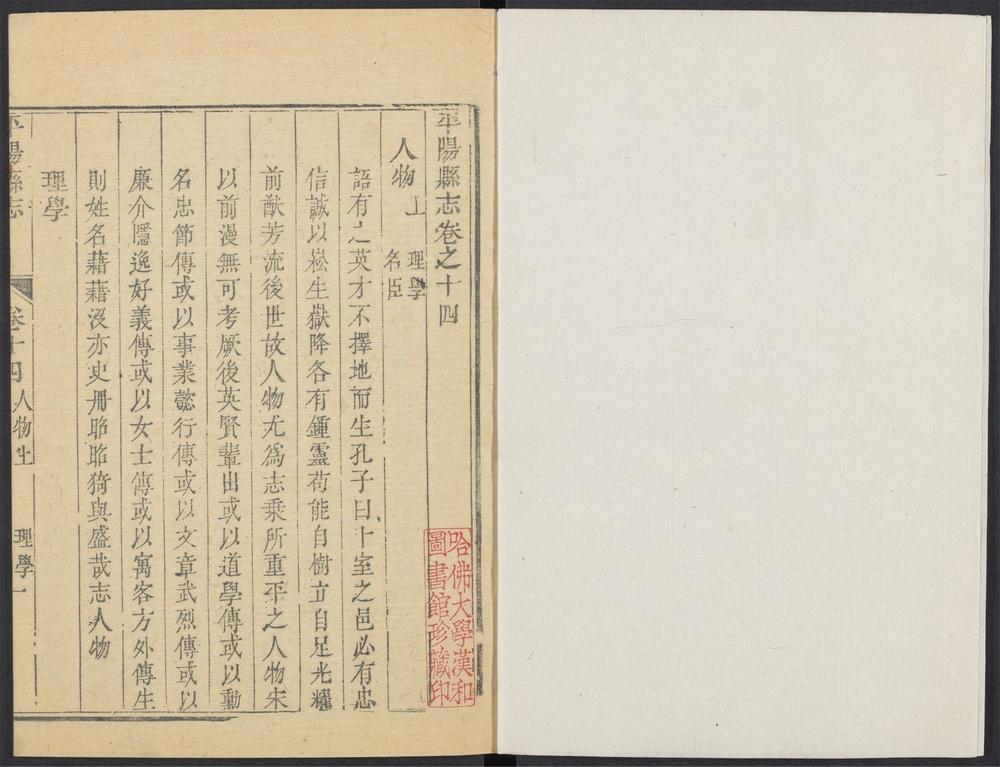 平陽縣志卷之十四
人物上 理學
名臣
語有之英才不擇地而生孔子曰十室之邑必有忠
信誠以崧生嶽降各有鍾靈苟能自樹立自足光耀
前猷芳流後世故人物尤為志乘所重平之人物宋
以前漫無可考厥後英賢輩出或以道學傳或以勳
名忠節傳或以事業懿行傳或以文章武烈傳或以
廉介隱逸好義傳或以女士傳或以寓客方外傳生
則姓名藉藉沒亦史冊昭昭猗與盛哉志人物
理學
平陽縣志 卷十四 人物上 理學 一
哈佛大學漢和
圖書館珍藏印